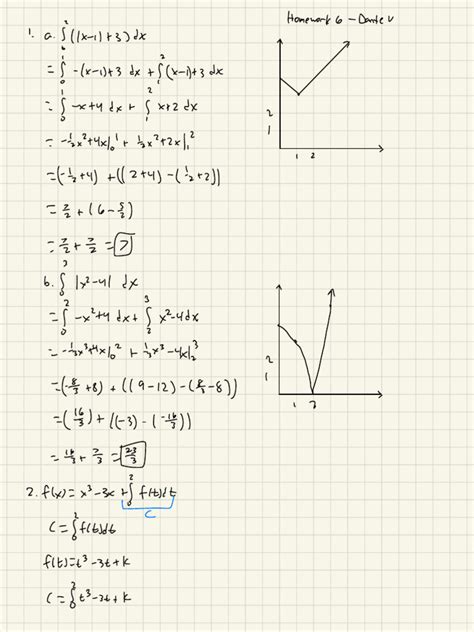 Homework 6 - Dante V
1. a. ∫₀² (|x-1|+3) dx
= ∫₀¹ -(x-1)+3 dx + ∫₁² (x-1)+3 dx
= ∫₀¹ -x+4 dx + ∫₁² x+2 dx
= -½x²+4x|₀¹ + ½x²+2x|₁²
= (-½+4) + ((2+4) - (½+2))
= 7/2 + (6 - 5/2)
= 7/2 + 7/2 = 7
2
1
1 2
b. ∫₀³ |x²-4| dx
= ∫₀² -x²+4 dx + ∫₂³ x²-4 dx
= -⅓x³+4x|₀² + ⅓x³-4x|₂³
= (-8/3+8) + ((9-12) - (8/3-8))
= (16/3) + ((-3) - (-16/3))
= 16/3 + 7/3 = 23/3
2
1
1 3
2. f(x) = x³-3x + ∫₀² f(t)dt
C
C = ∫₀² f(t)dt
f(t) = t³-3t+k
C = ∫₀² t³-3t+k